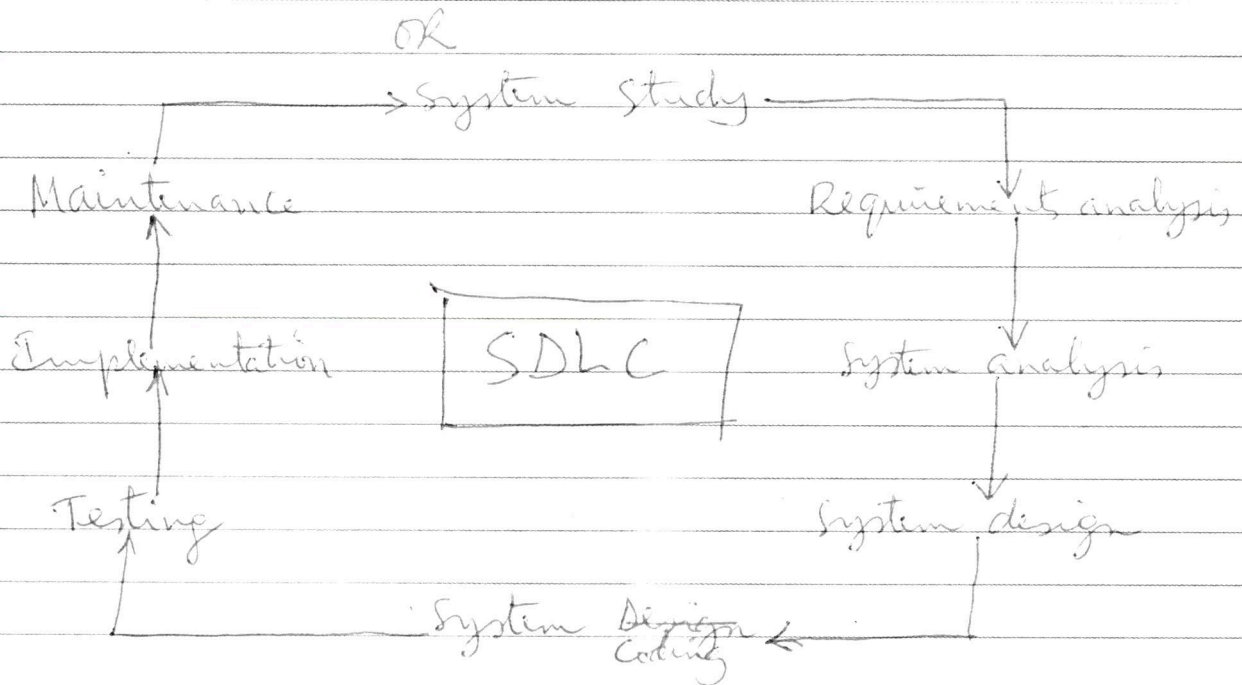 OR
System Study
Maintenance
Requirements analysis
Implementation
SDLC
System analysis
Testing
System design
System Design
Coding